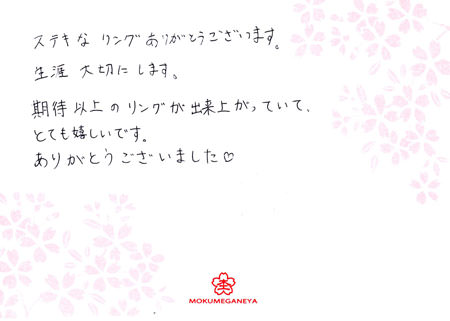 ステキな リングありがとうございます。
生涯 大切に します。
期待以上のリングが出来上がっていて、
とても嬉しいです。
ありがとうございました♡
MOKUMEGANEYA